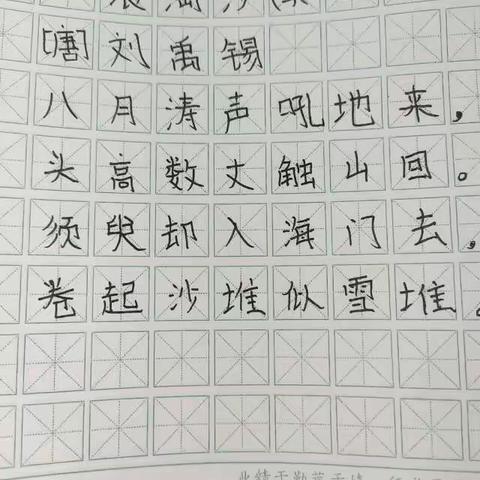 浪淘沙
[唐]刘禹锡
八月涛声吼地来，
头高数丈触山回。
须臾却入海门去，
卷起沙堆似雪堆。